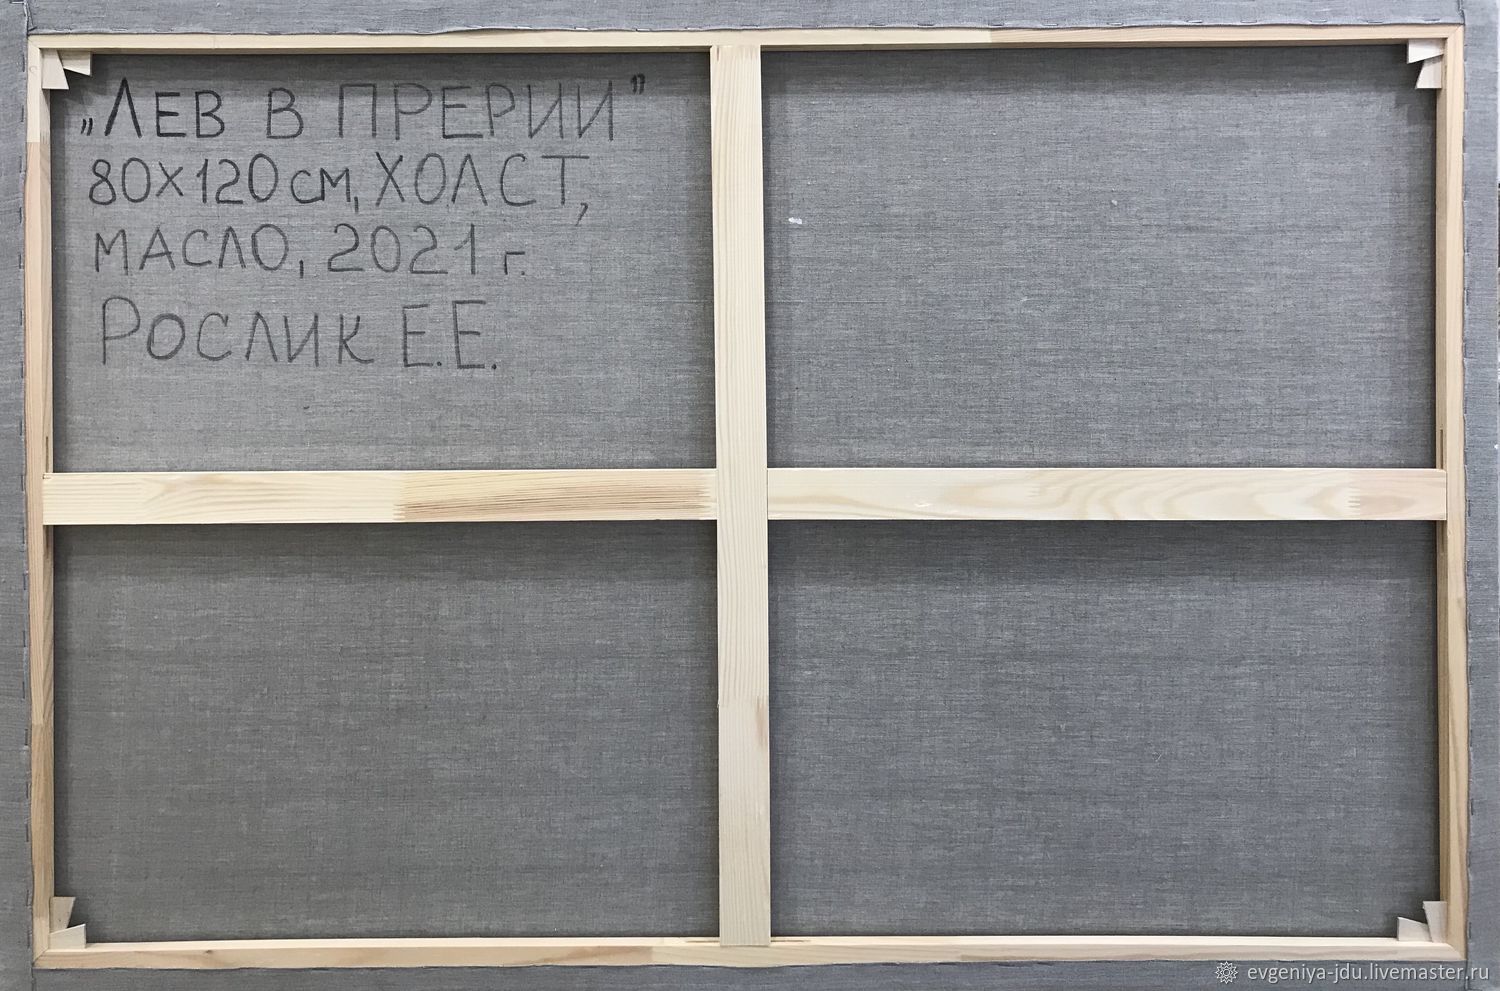 „ЛЕВ В ПРЕРИИ"
80х120 см, ХОЛСТ,
МАСЛО, 2021 г.
РОСЛИК Е.Е.
evgeniya-jdu.livemaster.ru